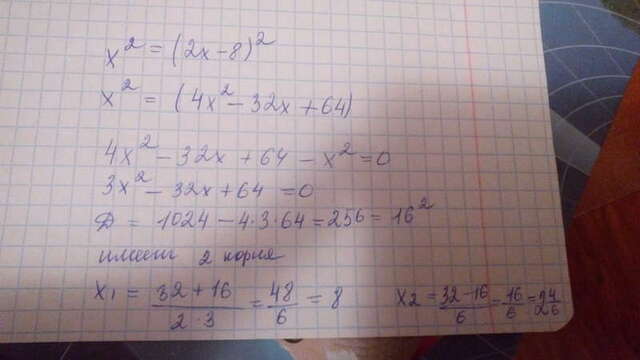 x² = (2x-8)²
x² = (4x² - 32x + 64)
4x² - 32x + 64 - x² = 0
3x² - 32x + 64 = 0
D = 1024 - 4·3·64 = 256 = 16²
имеет 2 корня
x₁ = (32+16)/(2·3) = 48/6 = 8 x₂ = (32-16)/6 = 16/6 =